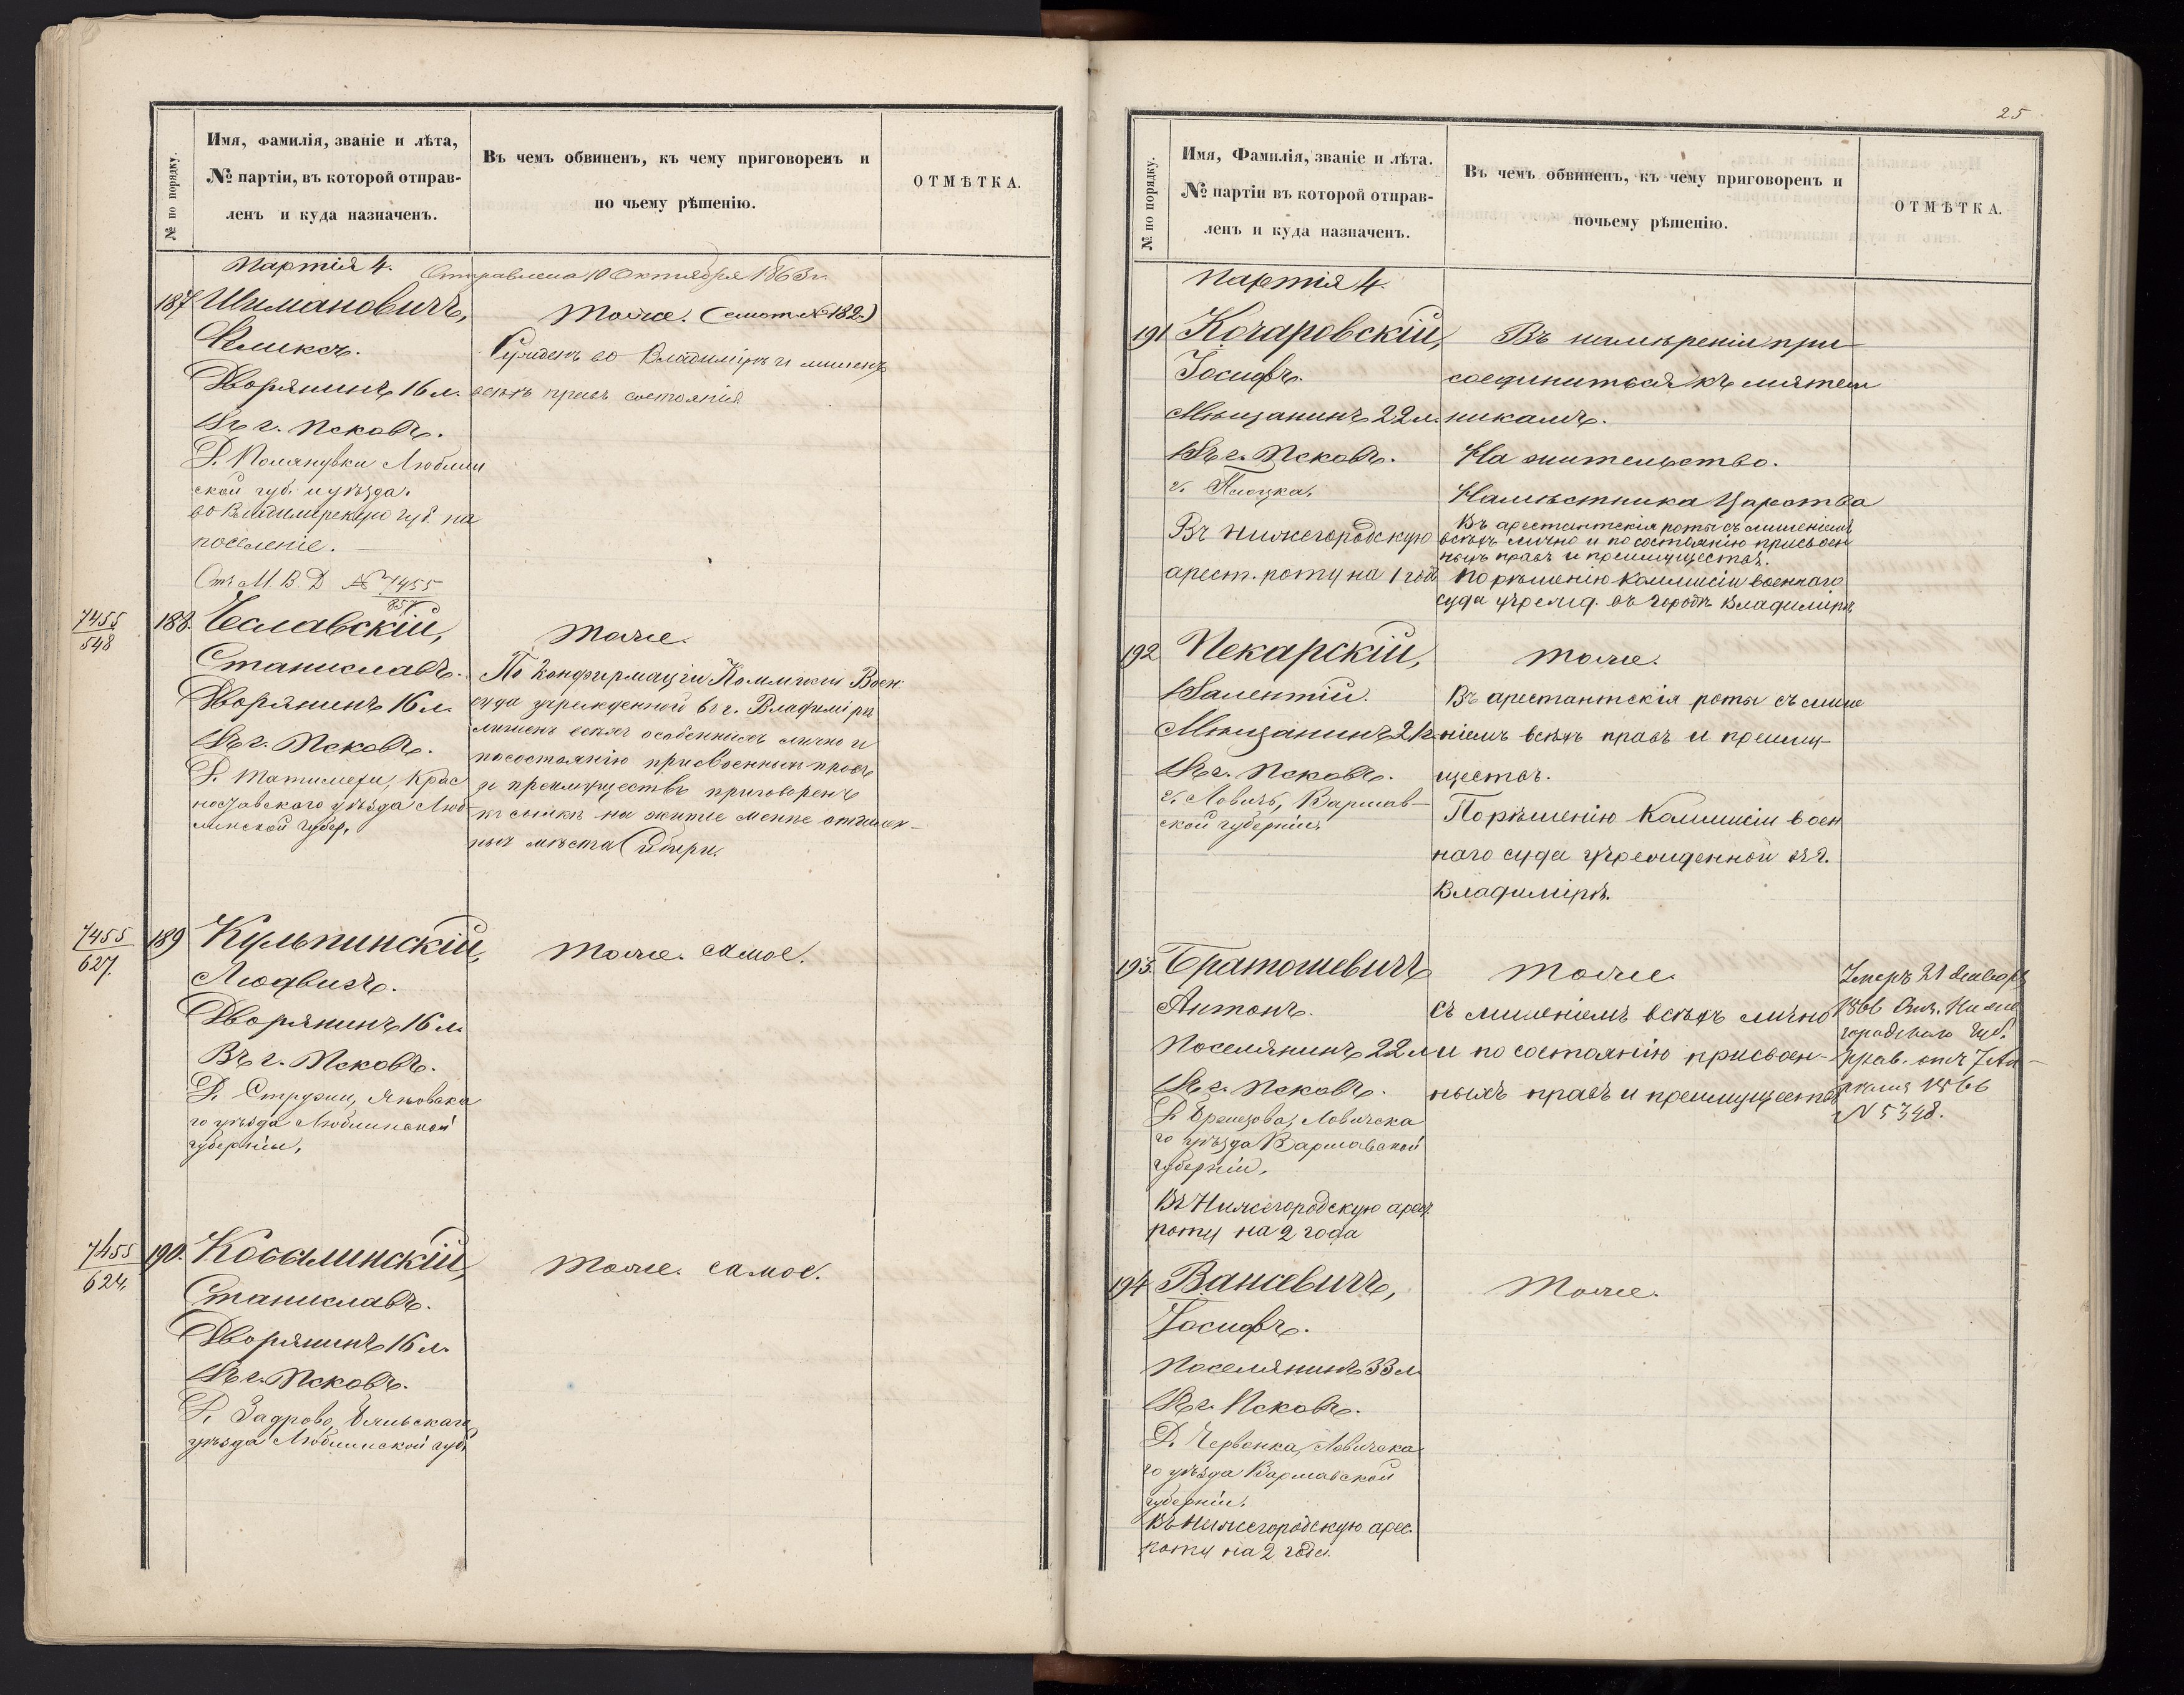 № по порядку.
Имя, фамилія, званіе и лѣта,
№ партіи, въ которой отправ-
ленъ и куда назначенъ.
Въ чемъ обвиненъ, къ чему приговоренъ и
по чьему рѣшенію.
ОТМѢТКА.
Партія 4. Отправлена 10 Октября 1863 г.
187 Шимановичъ,
Феликсъ.
Дворянинъ 16 л.
Въ г. Псковъ.
Люблин
ской губ. и уѣзда.
во Владимирскую губ на
поселеніе.
От М. В. Д. № 7455
Тоже. (смот. № 182.)
Сужденъ во Владимірѣ и лишенъ
всѣхъ правъ состоянія
7455
548
188. Чеславскій,
Станиславъ.
Дворянинъ 16 л.
Въ г. Псковъ.
Крас
ноставскаго уѣзда Люб
линской губер,
Тоже.
По конфирмаціи Коммисіи Воен.
суда учрежденной въ г. Владимірѣ
лишенъ всѣхъ особенныхъ лично и
по состоянію присвоенныхъ правъ
и преимуществъ приговоренъ
къ сылкѣ на житье менѣе отдален-
ныя мѣста Сибири.
7455
627.
189 Кульпинскій,
Людвигъ.
Дворянинъ 16 л.
Въ г. Псковъ.
Д. Яновска
го уѣзда Люблинской
губерніи,
Тоже. самое.
7455
624,
190. Коссылинскій,
Станиславъ.
Дворянинъ 16 л.
Въ г. Псковъ.
Д. Задрово,
уѣзда Люблинской губ.
Тоже. самое.
25
№ по порядку.
Имя, Фамилія, званіе и лѣта.
№ партіи въ которой отправ-
ленъ и куда назначенъ.
Въ чемъ обвиненъ, къ чему приговоренъ и
почьему рѣшенію.
ОТМѢТКА.
Партія 4.
191 Кочаровскій,
Іосифъ.
Мѣщанинъ 22 л.
Въ г. Псковъ.
г. Плоцка,
Въ Нижегородскую
арест. роту на 1 годъ
Въ намѣреніи при-
соединиться къ мятеж
никамъ.
На жительство.
Намѣстника Царства
Въ арестантскія роты съ лишеніемъ
всѣхъ лично и по состоянію присвоен
ныхъ правъ и преимуществъ.
по рѣшенію Коммисіи военнаго
суда учрежд. въ городѣ Владимірѣ
192 Пекарскій,
Валентій.
Мѣщанинъ
Въ г. Псковъ.
г. Ловичъ, Варшав-
ской губерніи
Тоже.
Въ арестантскія роты съ лише
ніемъ всѣхъ правъ и преиму-
ществъ.
По рѣшенію Коммисіи воен
наго суда учрежденной въ г.
Владимірѣ.
193. Братошевичъ
Антонъ.
Поселянинъ 22 л
Въ г. Псковъ.
Ловичска
го уѣзда Варшавской
губерніи,
Въ Нижегородскую арест.
роту на 2 года
Тоже
съ лишеніемъ всѣхъ лично
и по состоянію присвоен-
ныхъ правъ и преимуществъ
Умеръ 21
Нижне
городскаго Губ.
Прав. отъ 7 Ап
рѣля 1866
№ 5348.
194 Вансевичъ,
Іосифъ.
Поселянинъ 33 л
Въ г. Псковъ.
Д. Червонка, Ловичска
го уѣзда Варшавской
губерніи.
Въ Нижегородскую арес.
роту на 2 года.
Тоже.